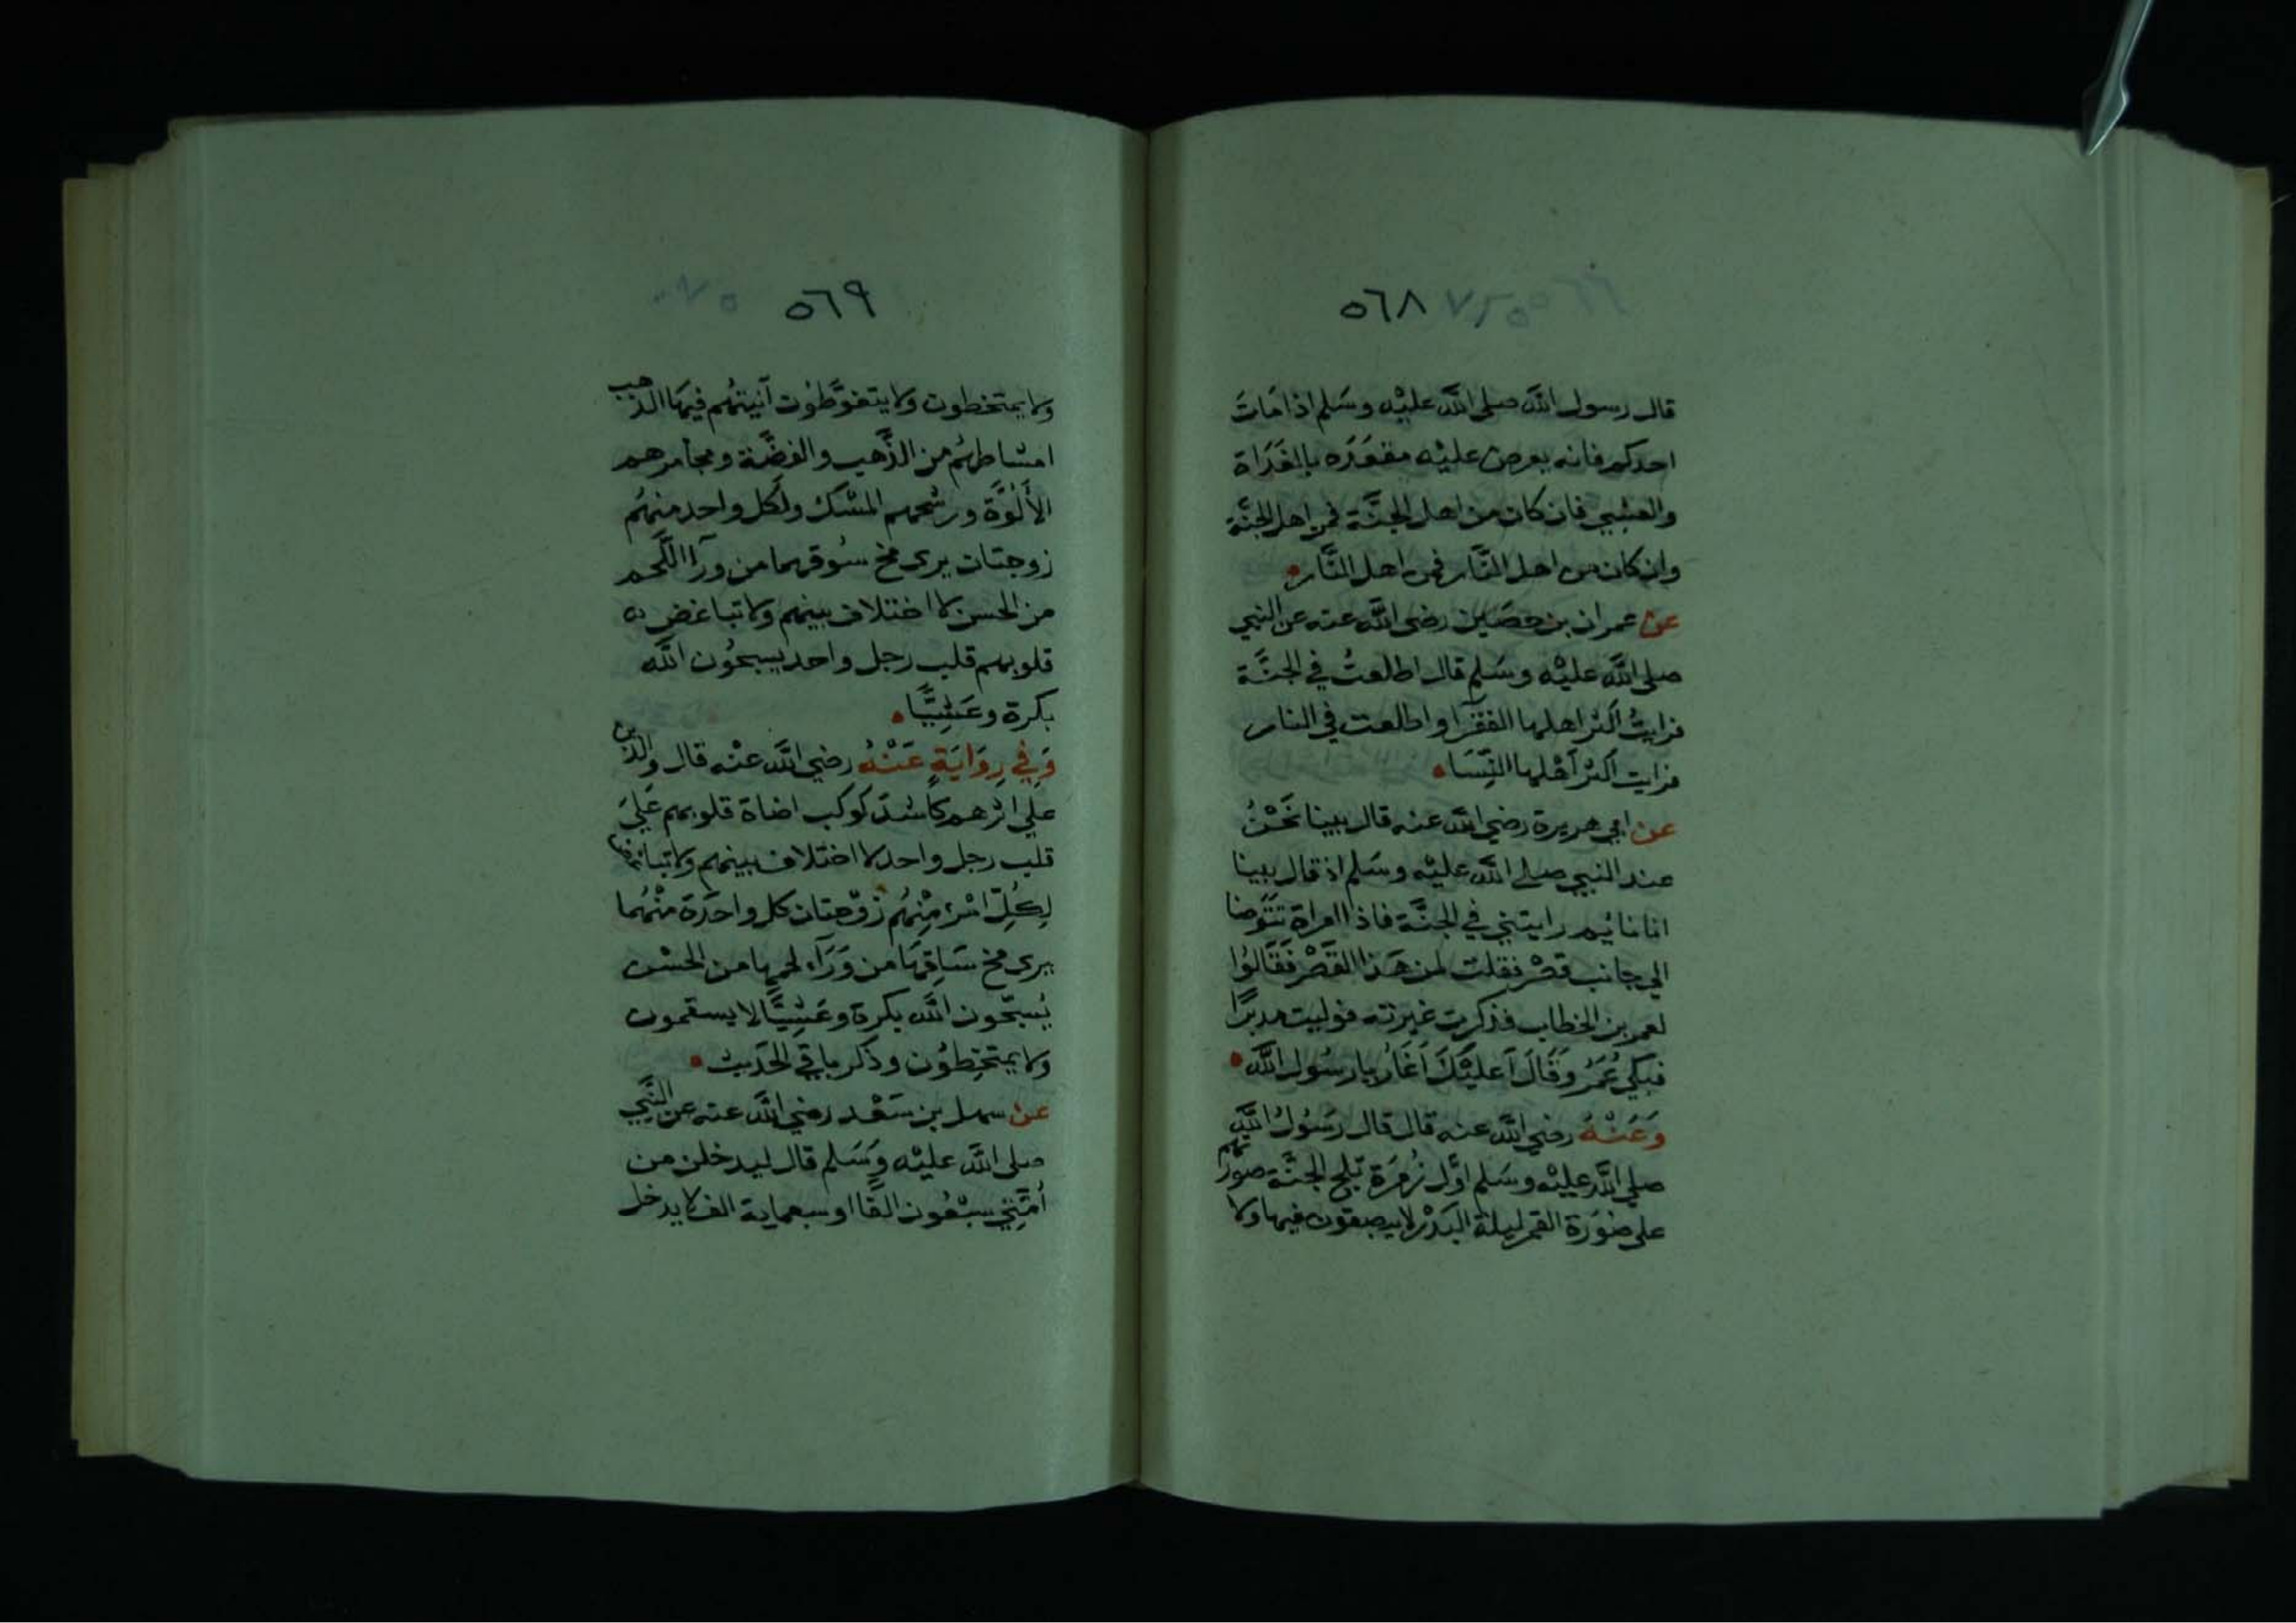 ٥٦٨
قال رسول الله صلى الله عليْه وسَلم اذا مَاتَ
احدكم فانه يعرض عليْه مقعَدَه بالغَدَاة
والعشي فان كان من اهل الجنَّة فمن اهل الجنَّة
وان كان من اهل النَّار فمن اهل النَّار
عن عمران بن حصَين رضى الله عنه عن النبي
صلى الله عليْه وسَلم قال اطلعتُ في الجنَّة
فرايتُ اكثر اهلها الفقرآ واطلعت في النار
فرايت اكثر اَهْلها النِّسَا
عن ابي هريرة رضي الله عنه قال بينا نَحْنُ
عند النبي صلى الله عليْه وسَلم اذ قال بينا
انا نايم رايتني في الجنَّة فاذا امراة تتَوضا
الي جانب قصْر فقلت لمن هَذا القصْر فقَالوُا
لعمر بن الخطاب فذكرت غيرته فوليت مدبرًا
فبكي عُمَرُ وَقَالَ اَعليْكَ اَغَارُ يا رسُول الله
وَعَنْهُ رضي الله عنه قال قال رسَوُلُ الله
صلى الله عليْه وسَلم اوَّل زُمرَة تلج الجنَّة صورتهم
على صوُرَة القمر ليلة البَدْر لا يبصقون فيها ولا
٥٦٩
ولا يمتخطون ولا يتغوَّطوُن آنيتهُم فيهَا الذهب
امشاطهُم من الذَّهب والفضَّة ومجامرهم
الأَلُوَّة ورشحهم المسْك ولكل واحد منهُم
زوجتان يرى مخ سُوقهما من ورآ اللَّحم
من الحسن لا اختلاف بينهم ولا تباغض
قلوبهم قلب رجل واحد يسبحوُن الله
بكرة وعَشِيًّا
وَفِي رِوَايَةٍ عَنْهُ رضي الله عنْه قال والذين
علي اثرهم كاشدّ كوكب اضاة قلوبهم عَليَ
قلب رجل واحد لا اختلاف بينهم ولا تباغض
لِكُلّ امْرئ مِنْهُم زوْجتان كل واحدَة منْهُما
يرى مخ سَاقِهَا من وَرَآء لحمها من الحسْن
يُسبّحون الله بكرة وعَشِيًّا لا يسقمون
ولا يمتخِطوُن وذكر باقي الحَديث
عن سهل بن سَعْد رضي الله عنه عن النَّبي
صلى الله عليْه وَسَلم قال ليدخلن من
أمَّتِي سبْعُون الفًا او سبعماية الف لا يدخل